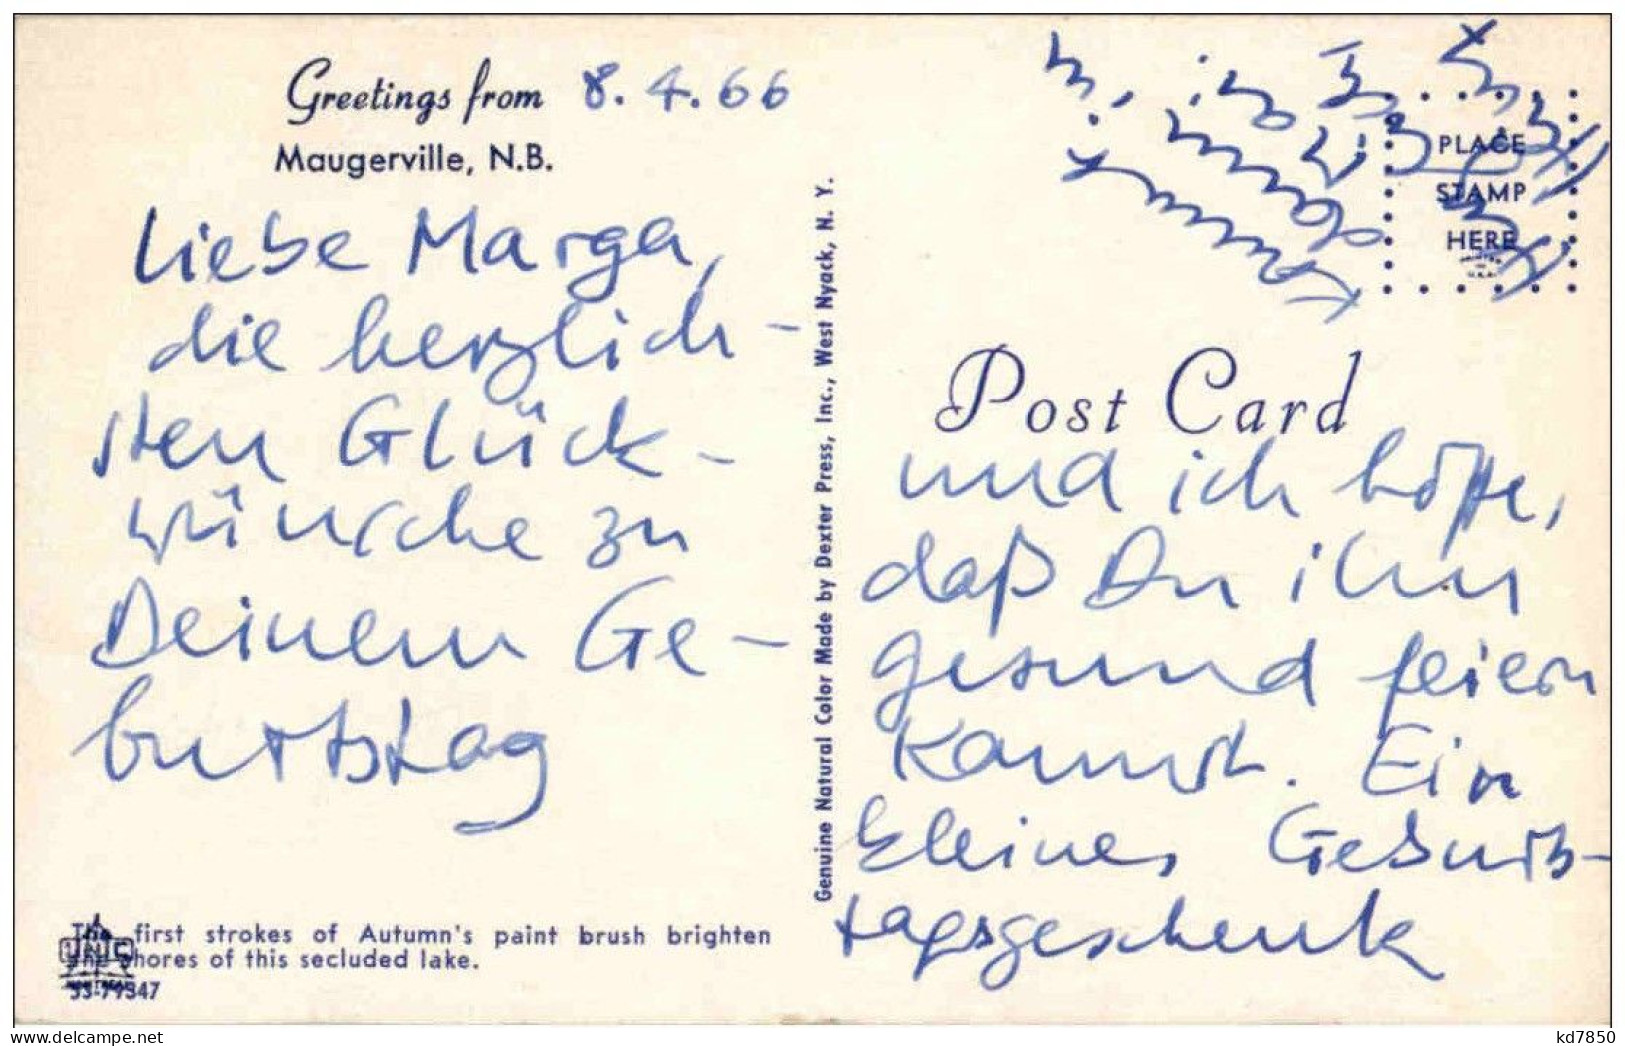 Greetings from 8.4.66
Maugerville, N.B.
Liebe Marga,
die herzlich-
sten Glück-
wünsche zu
Deinem Ge-
burtstag
The first strokes of Autumn's paint brush brighten
the shores of this secluded lake.
UNIC
MONTREAL
53-79347
Genuine Natural Color Made by Dexter Press, Inc., West Nyack, N. Y.
PLACE
STAMP
HERE
PRINTED
IN
U.S.A.
Post Card
und ich hoffe,
daß Du ihn
gesund feiern
kannst. Ein
kleines Geburts-
tagsgeschenk
delcampe.net
kd7850